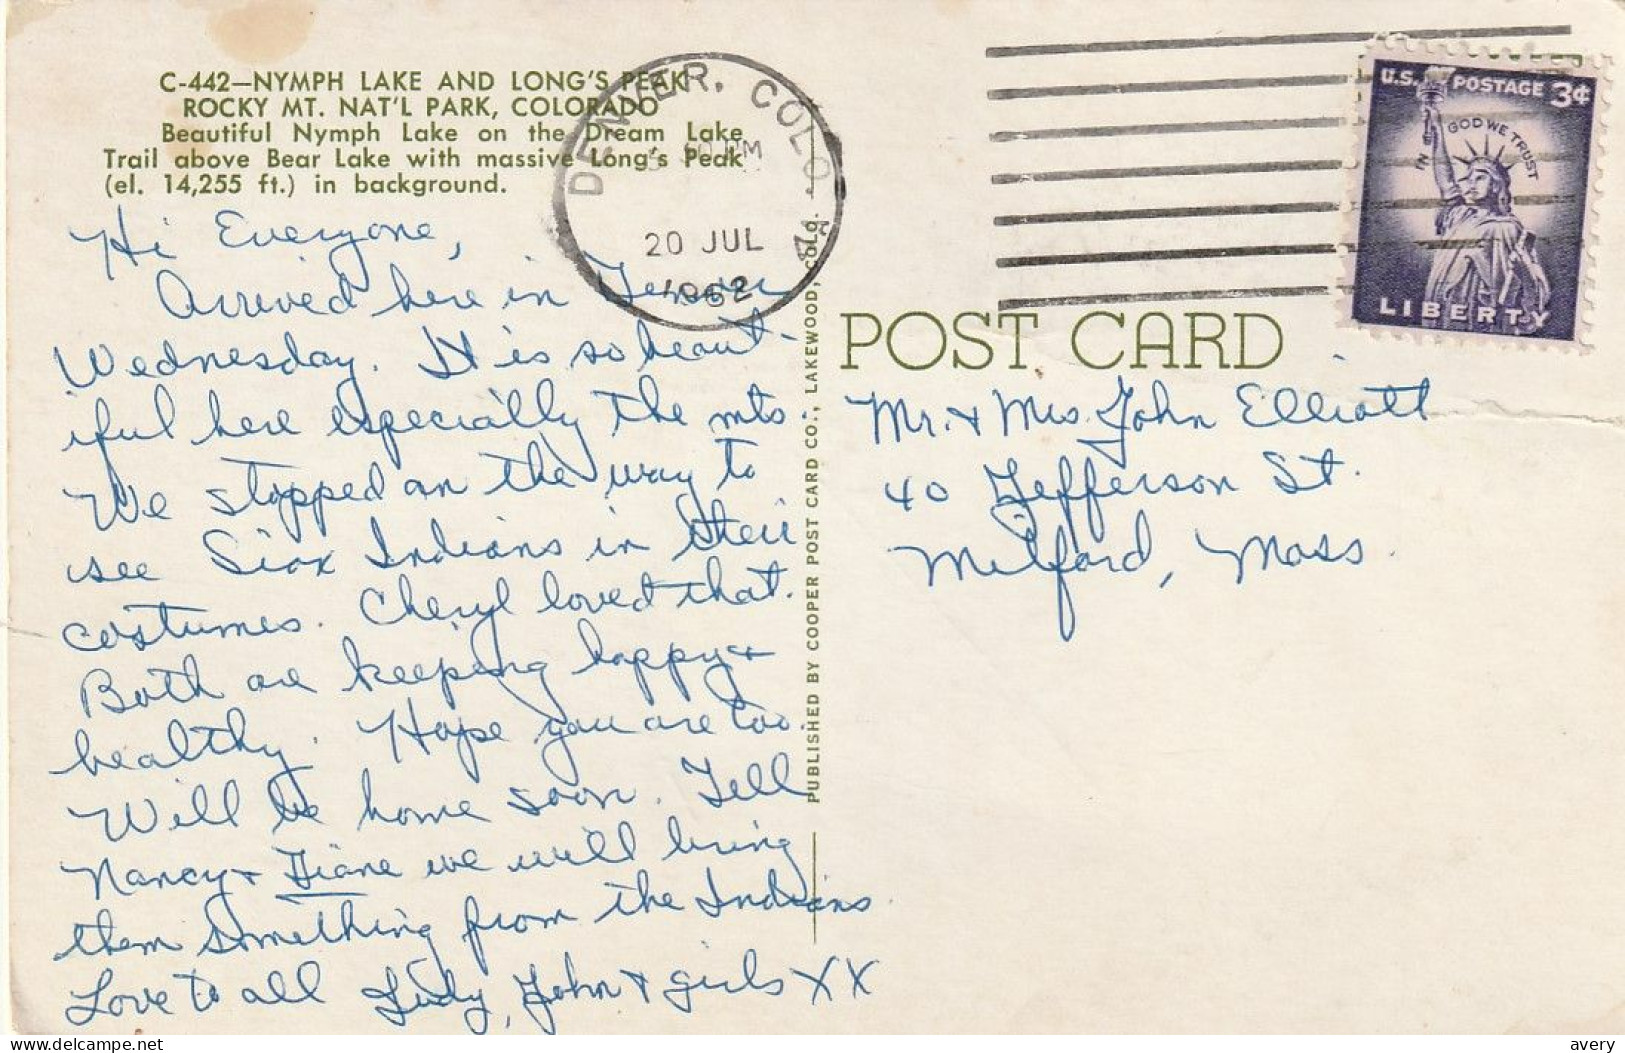 C-442—NYMPH LAKE AND LONG'S PEAK
ROCKY MT. NAT'L PARK, COLORADO
Beautiful Nymph Lake on the Dream Lake
Trail above Bear Lake with massive Long's Peak
(el. 14,255 ft.) in background.
Hi Everyone,
Arrived here in Denver
Wednesday. It is so beaut-
iful here especially the mts
We stopped on the way to
see Siox Indians in their
costumes. Cheryl loved that.
Both are keeping happy +
healthy. Hope you are too.
Will be home soon. Tell
Nancy + Diane we will bring
them something from the Indians.
Love to all Judy, John + girls XX
DENVER, COLO.
PM
20 JUL
1962
PUBLISHED BY COOPER POST CARD CO., LAKEWOOD, COLO.
U.S. POSTAGE 3¢
IN GOD WE TRUST
LIBERTY
POST CARD
Mr. + Mrs. John Elliott
40 Jefferson St.
Milford, Mass.
the-canadian-seller@delcampe.net
avery